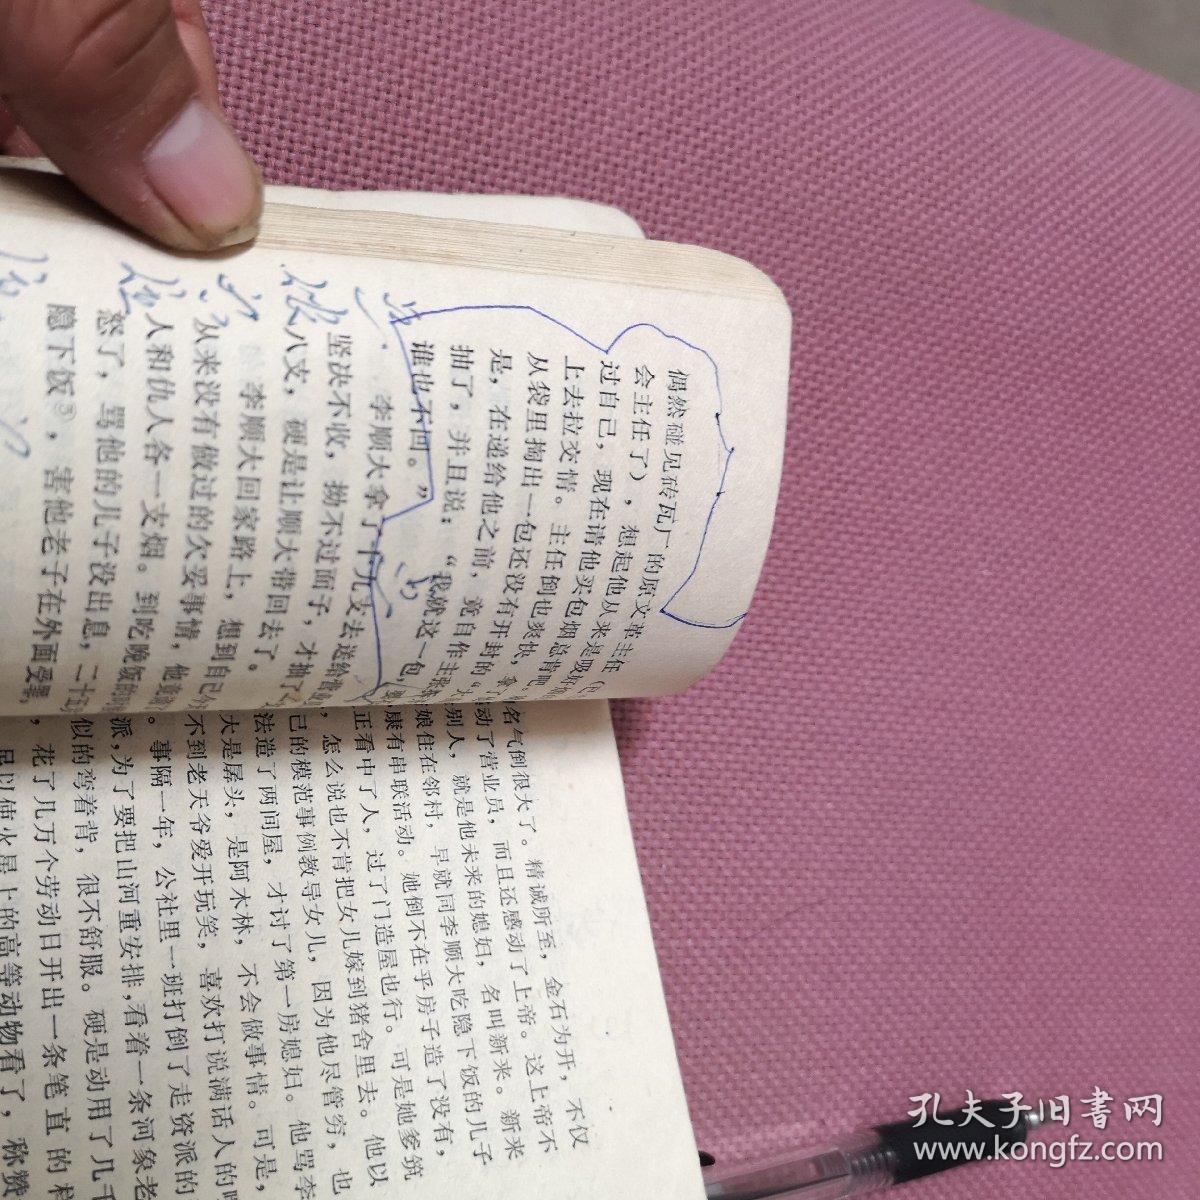 偶然碰见砖瓦厂的原文革主任
会主任了），想起他从来是吸好
过自己，现在请他买包烟总肯吧，
上去拉交情。主任倒也爽快，
从袋里掏出一包还没有开封的
是，在递给他之前，竟自作主张
抽了，并且说：“我就这一包，
谁也不回。”
李顺大拿了十九支去送给
坚决不收，拗不过面子，才抽了
八支，硬是让顺大带回去了。
李顺大回家路上，想到自己
从来没有做过的欠妥事情，他
人和仇人各一支烟。到吃晚饭的时
怒了，骂他的儿子没出息，二十
隐下饭⑤，害他老子在外面受罪，
名气倒很大了。精诚所至，金石为开，不仅
动了营业员，而且还感动了上帝。这上帝不
别人，就是他未来的媳妇，名叫新来。新来
娘住在邻村，早就同李顺大吃隐下饭的儿子
康有串联活动。她倒不在乎房子造了没有，
正看中了人，过了门造屋也行。可是她爹筑
，怎么说也不肯把女儿嫁到猪舍里去。他以
己的模范事例教导女儿，因为他尽管穷，也
法造了两间屋，才讨了第一房媳妇。他骂李
大是孱头，是阿木林，不会做事情。可是，
不到老天爷爱开玩笑，喜欢打说满话人的嘴
。事隔一年，公社里一班打倒了走资派的
派，为了要把山河重安排，看着一条河象老
似的弯着背，很不舒服。硬是动用了几千
，花了几万个劳动日开出一条笔直的
足以使火星上的高等动物看了，称赞
孔夫子旧书网
www.kongfz.com